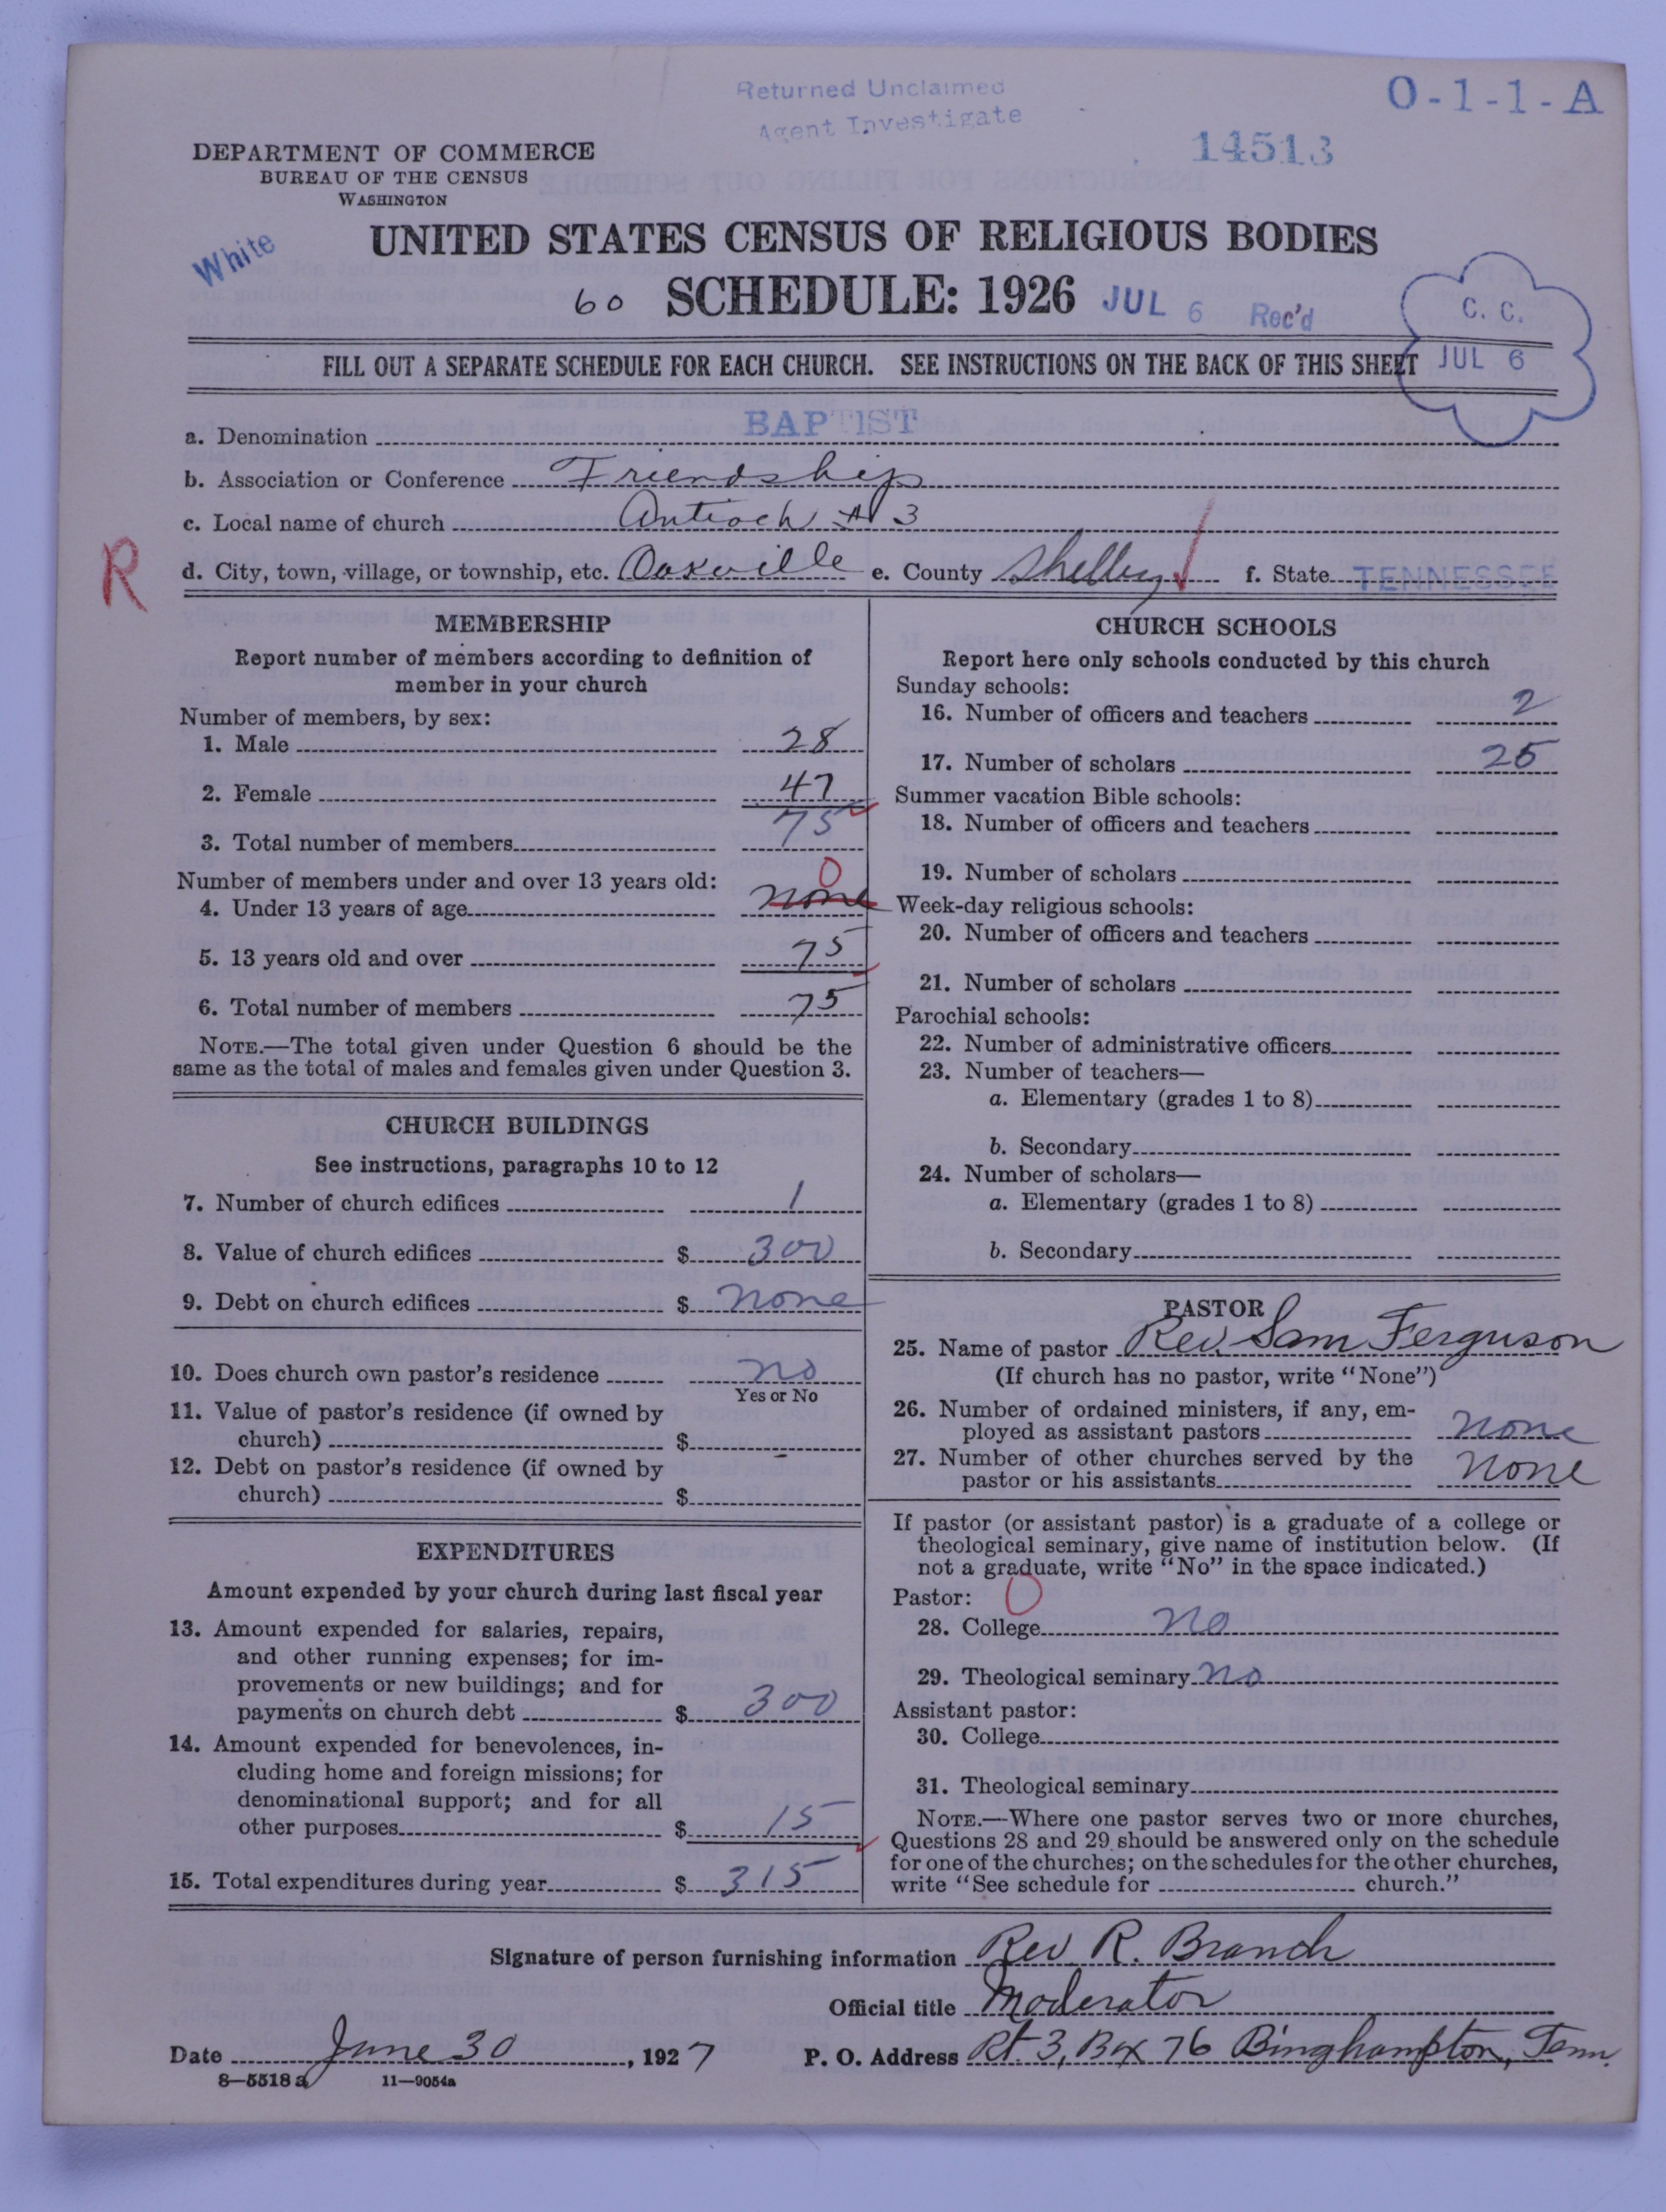 Returned Unclaimed
Agent Investigate
O-1-1-A
14513
DEPARTMENT OF COMMERCE
BUREAU OF THE CENSUS
WASHINGTON
White
UNITED STATES CENSUS OF RELIGIOUS BODIES
60 SCHEDULE: 1926 JUL 6 Rec'd
C. C.
JUL 6
FILL OUT A SEPARATE SCHEDULE FOR EACH CHURCH. SEE INSTRUCTIONS ON THE BACK OF THIS SHEET
a. Denomination BAPTIST
b. Association or Conference Friendship
c. Local name of church Antioch # 3
R
d. City, town, village, or township, etc. Oakville e. County Shelby f. State TENNESSEE
MEMBERSHIP
Report number of members according to definition of
member in your church
Number of members, by sex:
1. Male 28
2. Female 47
3. Total number of members 75
Number of members under and over 13 years old: 0
4. Under 13 years of age none
5. 13 years old and over 75
6. Total number of members 75
NOTE.—The total given under Question 6 should be the
same as the total of males and females given under Question 3.
CHURCH BUILDINGS
See instructions, paragraphs 10 to 12
7. Number of church edifices 1
8. Value of church edifices $ 300
9. Debt on church edifices $ none
10. Does church own pastor's residence no
Yes or No
11. Value of pastor's residence (if owned by
church) $
12. Debt on pastor's residence (if owned by
church) $
EXPENDITURES
Amount expended by your church during last fiscal year
13. Amount expended for salaries, repairs,
and other running expenses; for im-
provements or new buildings; and for
payments on church debt $ 300
14. Amount expended for benevolences, in-
cluding home and foreign missions; for
denominational support; and for all
other purposes $ 15
15. Total expenditures during year $ 315
CHURCH SCHOOLS
Report here only schools conducted by this church
Sunday schools:
16. Number of officers and teachers 2
17. Number of scholars 25
Summer vacation Bible schools:
18. Number of officers and teachers
19. Number of scholars
Week-day religious schools:
20. Number of officers and teachers
21. Number of scholars
Parochial schools:
22. Number of administrative officers
23. Number of teachers—
a. Elementary (grades 1 to 8)
b. Secondary
24. Number of scholars—
a. Elementary (grades 1 to 8)
b. Secondary
PASTOR
25. Name of pastor Rev. Sam Ferguson
(If church has no pastor, write "None")
26. Number of ordained ministers, if any, em-
ployed as assistant pastors none
27. Number of other churches served by the
pastor or his assistants none
If pastor (or assistant pastor) is a graduate of a college or
theological seminary, give name of institution below. (If
not a graduate, write "No" in the space indicated.)
Pastor: 0
28. College no
29. Theological seminary no
Assistant pastor:
30. College
31. Theological seminary
NOTE.—Where one pastor serves two or more churches,
Questions 28 and 29 should be answered only on the schedule
for one of the churches; on the schedules for the other churches,
write "See schedule for church."
Signature of person furnishing information Rev R. Branch
Official title Moderator
Date June 30, 1927 P. O. Address Rt. 3, Box 76 Binghampton, Tenn.
8—5518 a 11—9054a